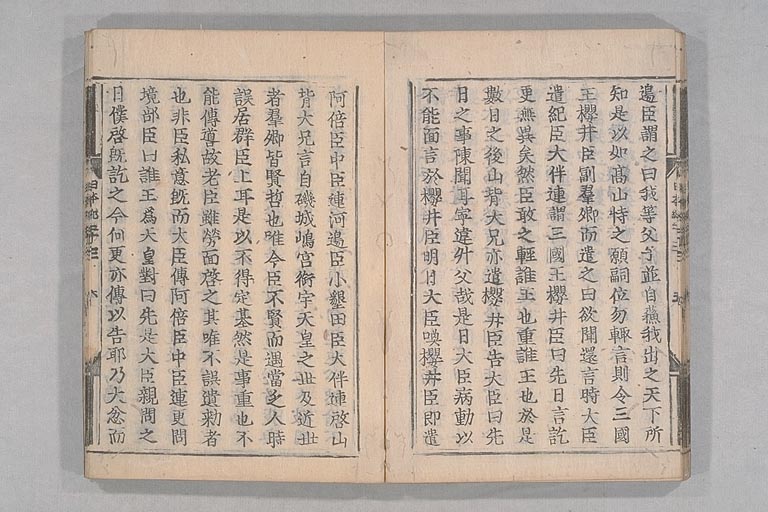 邉臣謂之曰我等父子並自蘇我出之天下所
知是以如髙山恃之願嗣位勿輙言則令三國
王櫻井臣副羣卿而遣之曰欲聞還言時大臣
遣紀臣大伴連謂三國王櫻井臣曰先日言訖
更無異矣然臣敢之輕誰王也重誰王也於是
數日之後山背大兄亦遣櫻井臣告大臣曰先
日之事陳聞耳寧違叔父哉是日大臣病動以
不能面言於櫻井臣明日大臣喚櫻井臣即遣
阿倍臣中臣連河邉臣小墾田臣大伴連啓山
背大兄言自磯城嶋宮御宇天皇之世及近世
者羣卿皆賢哲也唯今臣不賢而遇當乏人時
誤居群臣上耳是以不得定基然是事重也不
能傳導故老臣雖勞面啓之其唯不誤遺勅者
也非臣私意旣而大臣傳阿倍臣中臣連更問
境部臣曰誰王爲天皇對曰先是大臣親問之
日僕啓旣訖之今何更亦傳以告耶乃大忿而
日本紀
六